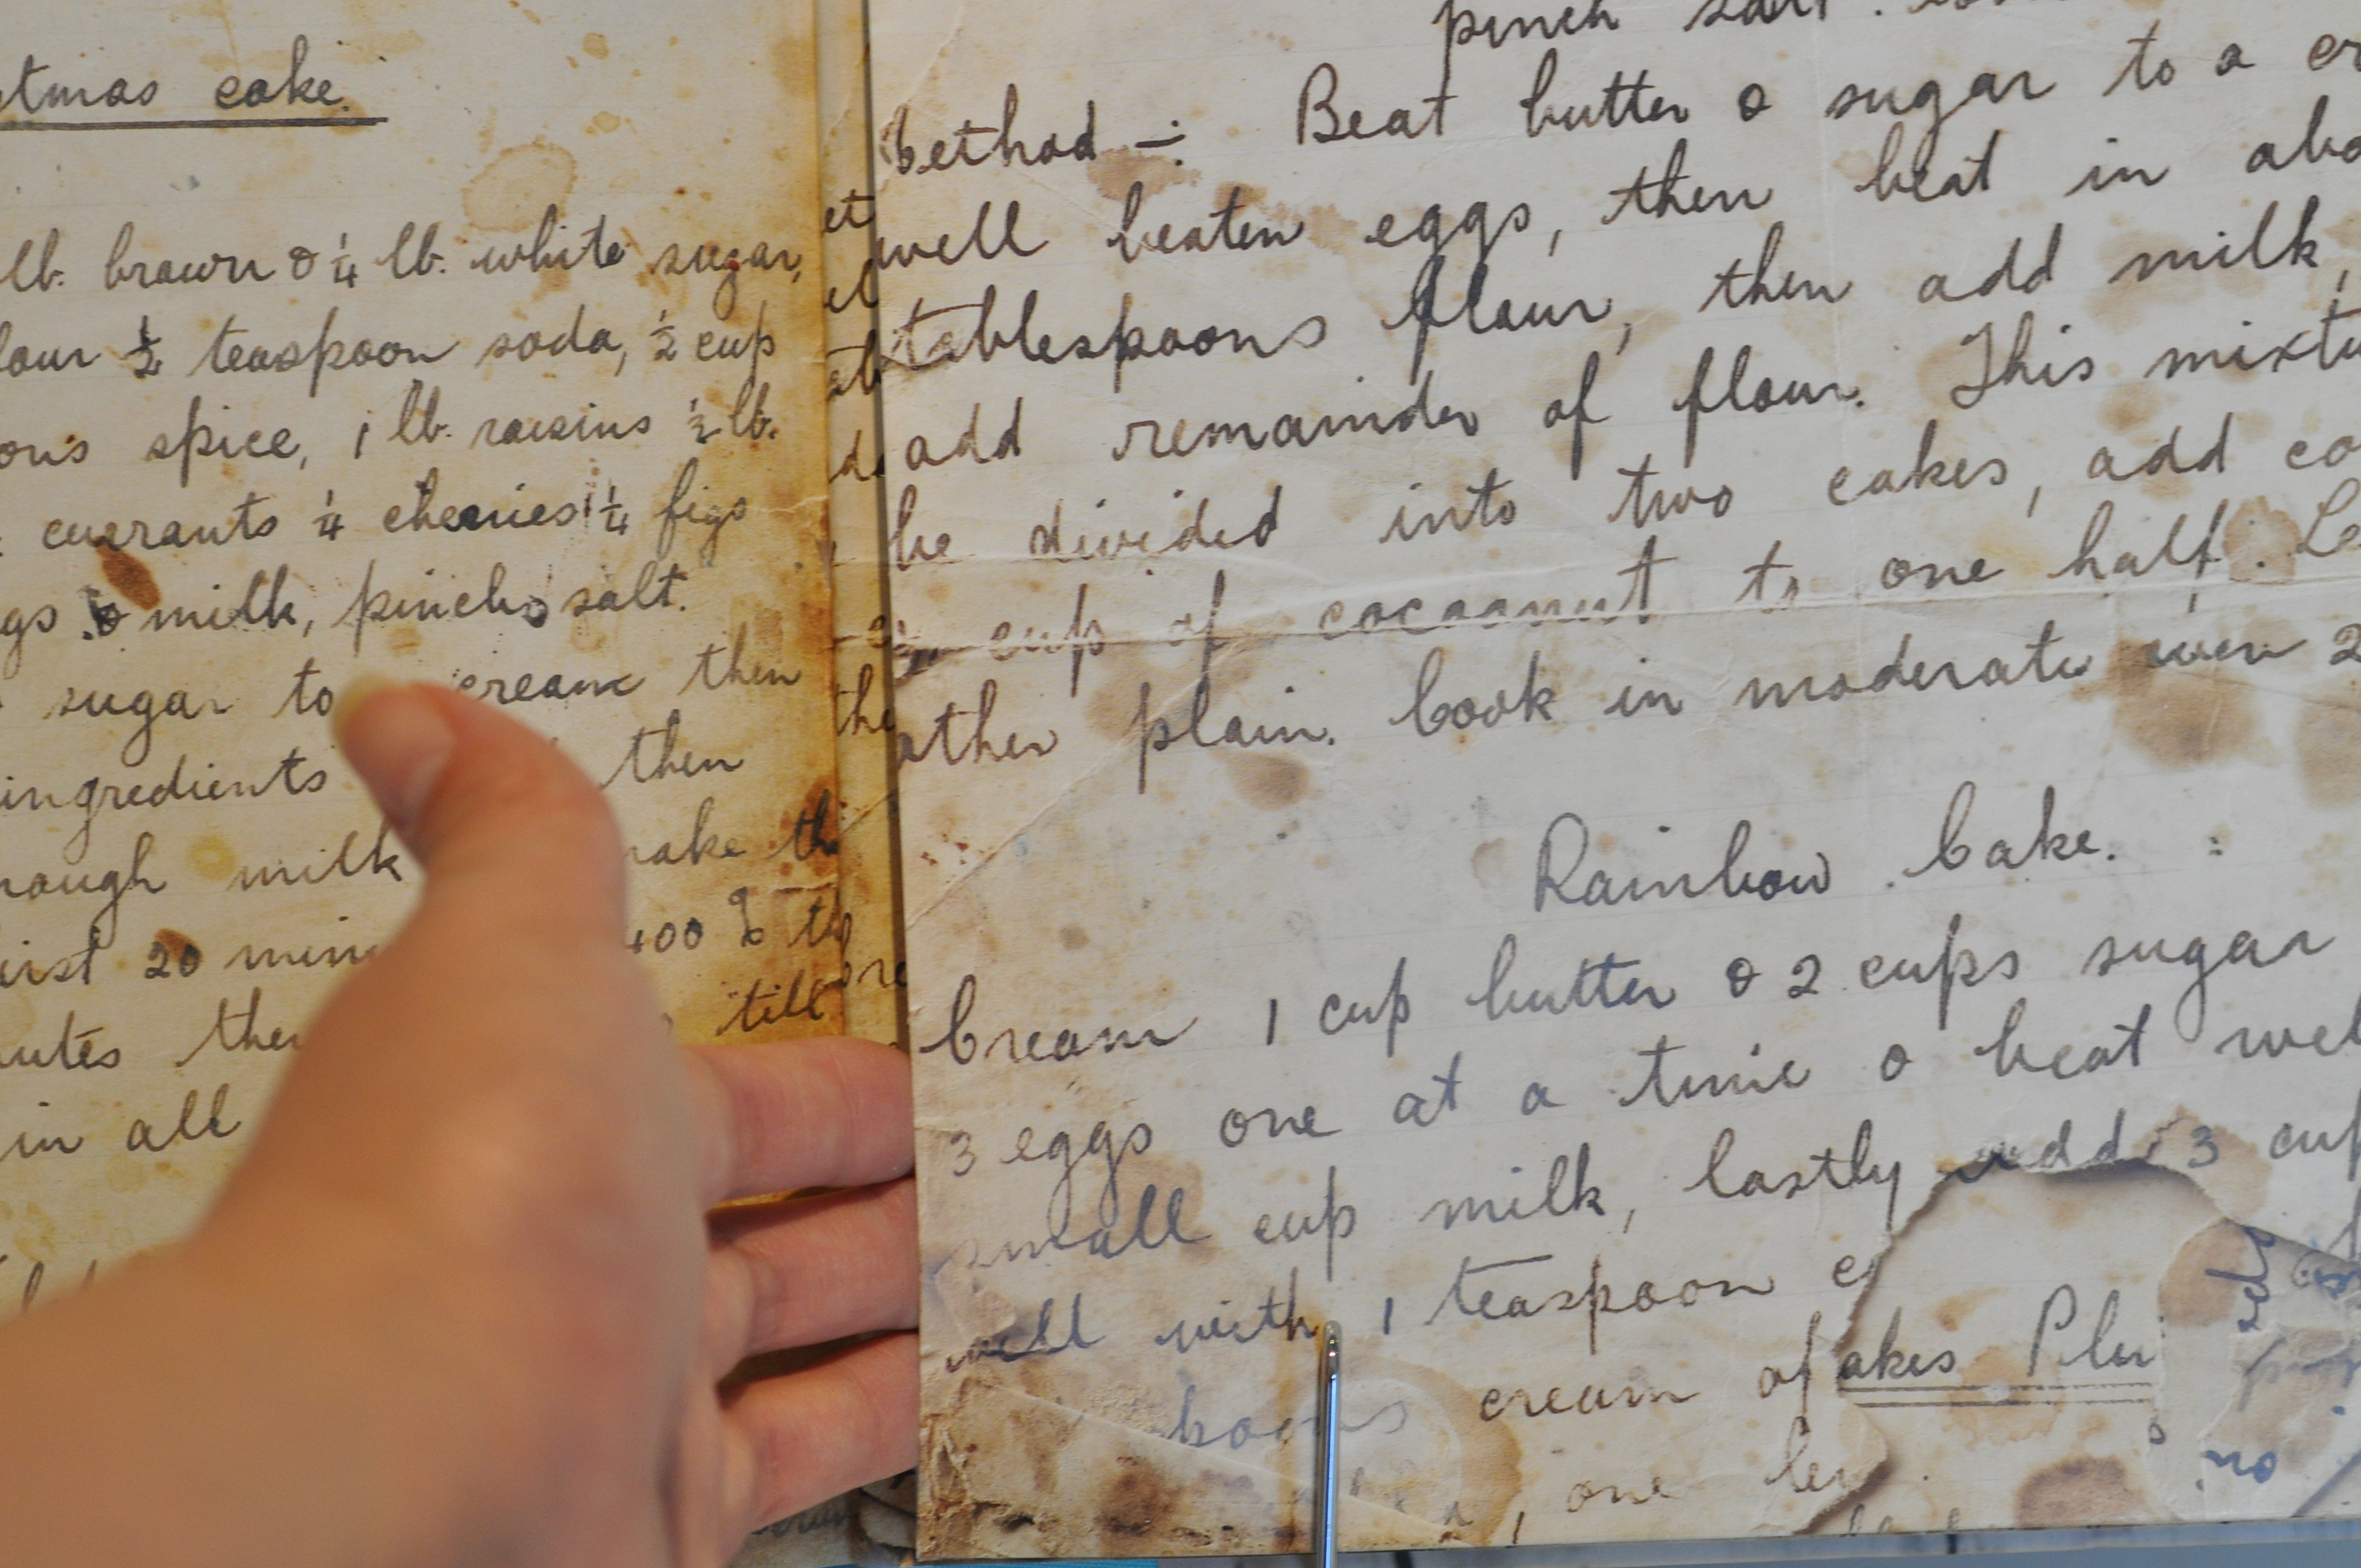 tmas cake.
lb. brown & 1/4 lb. white sugar,
lour 1/2 teaspoon soda, 1/2 cup
ons spice, 1 lb. raisins 1/2 lb.
currants 1/4 cherries 1/4 figs
gs & milk, pinch salt.
sugar to cream then
ingredients then
nough milk make th
irst 20 min 400 to
utes then till
in all
pinch salt.
Method -: Beat butter & sugar to a cr
well beaten eggs, then beat in abo
tablespoons flour, then add milk,
add remainder of flour. This mixtu
be divided into two cakes, add co
cup of cocoanut to one half. Le
other plain. Cook in moderate oven 2
Rainbow Cake.
Cream 1 cup butter & 2 cups sugar
3 eggs one at a time & beat wel
small cup milk, lastly add 3 cup
well with 1 teaspoon
cream of
akes Plu
one
no